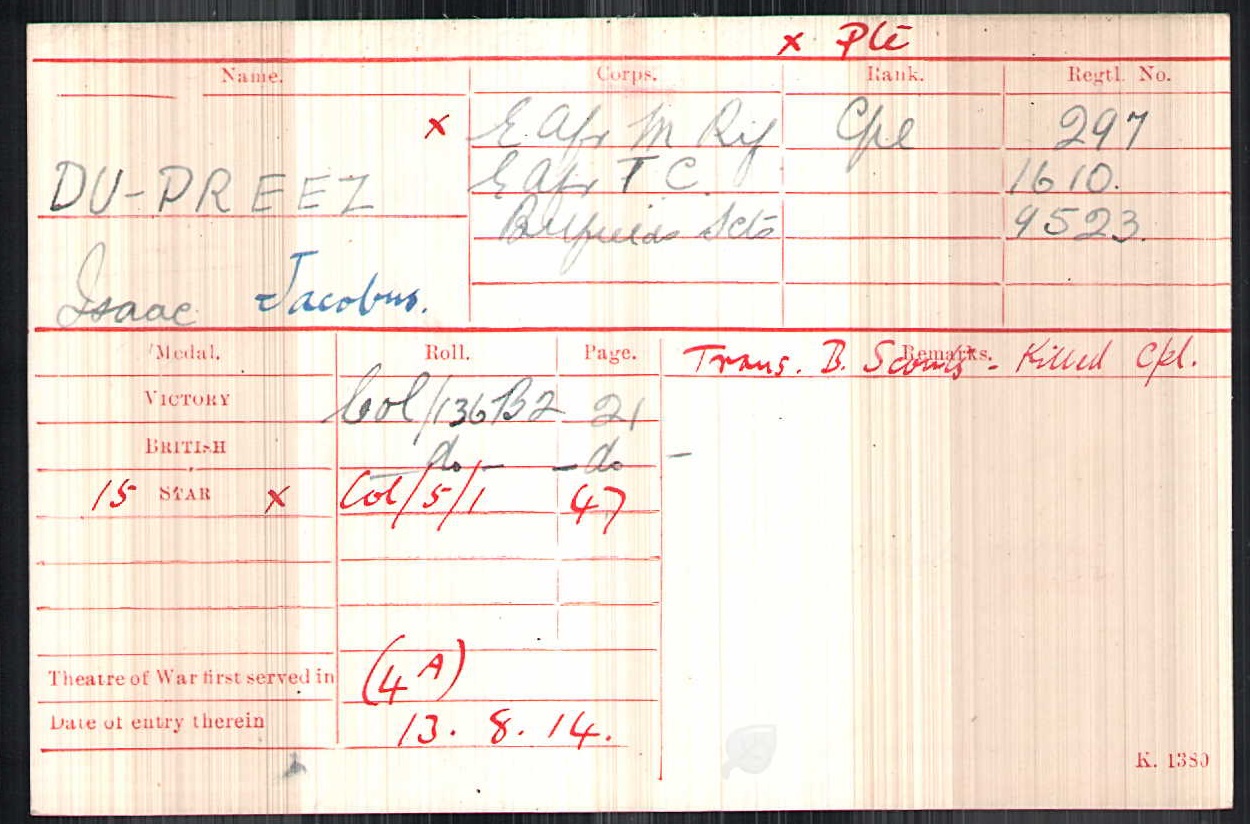 x Pte
Name. Corps. Rank. Regtl. No.
x E Afr M Rif Cpl 297
DU-PREEZ E Afr T C. 1610.
Scts 9523.
Isaac Jacobus.
Medal. Roll. Page. Remarks.
Trans. B. Scouts - Killed Cpl.
VICTORY Col/136B2 21
BRITISH do - - do -
15 STAR x Col/5/1 47
Theatre of War first served in (4A)
Date of entry therein 13. 8. 14.
K. 1380